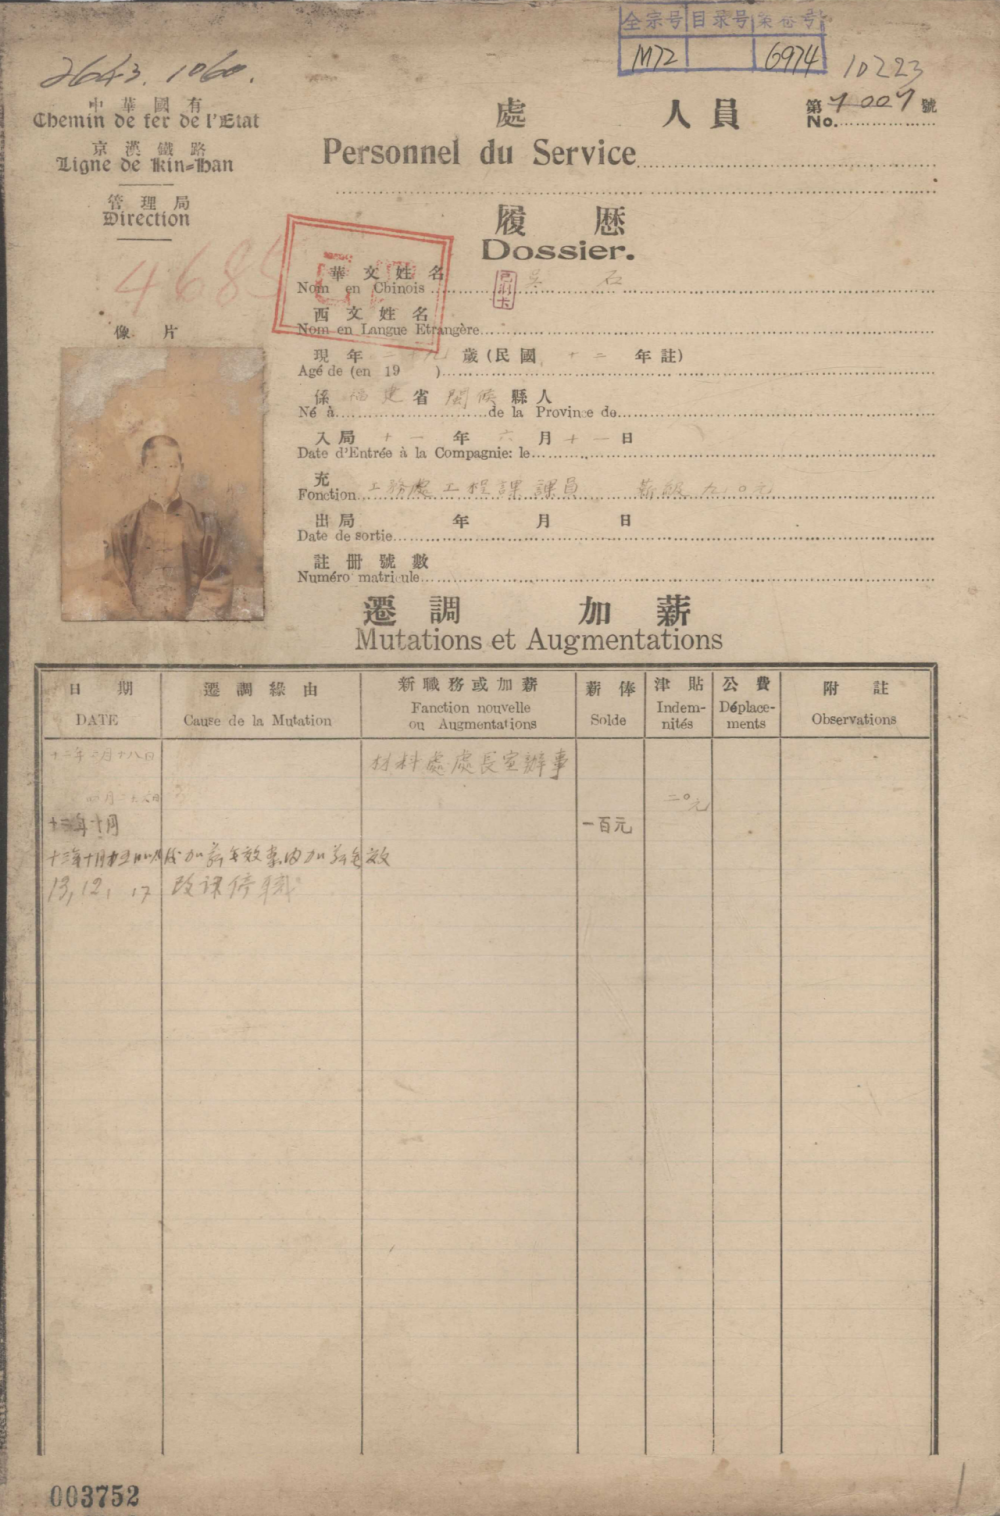 全宗号 目录号 案卷号
M72 6974
2643. 1060.
10223
中華國有
Chemin de fer de l'Etat
京漢鐵路
Ligne de Kin-Han
管理局
Direction
處 人員
第 號
No. 7007
Personnel du Service
履歷
Dossier.
4685
華文姓名 吳石
Nom en Chinois
西文姓名
Nom en Langue Etrangère
像片
現年 歲(民國十二年註)
Agé de (en 19 )
係福建省閩侯縣人
Né à de la Province de
入局十一年六月十一日
Date d'Entrée à la Compagnie: le
充 工務處工程課課員 薪級九〇元
Fonction
出局 年 月 日
Date de sortie
註册號數
Numéro matricule
遷調 加薪
Mutations et Augmentations
日期 遷調緣由 新職務或加薪 薪俸 津貼 公費 附註
DATE Cause de la Mutation Fanction nouvelle ou Augmentations Solde Indem-nités Déplace-ments Observations
十二年二月十八日 材料處處長室辦事
二〇元
十三年十月 一百元
13, 12, 17 改課停職
003752